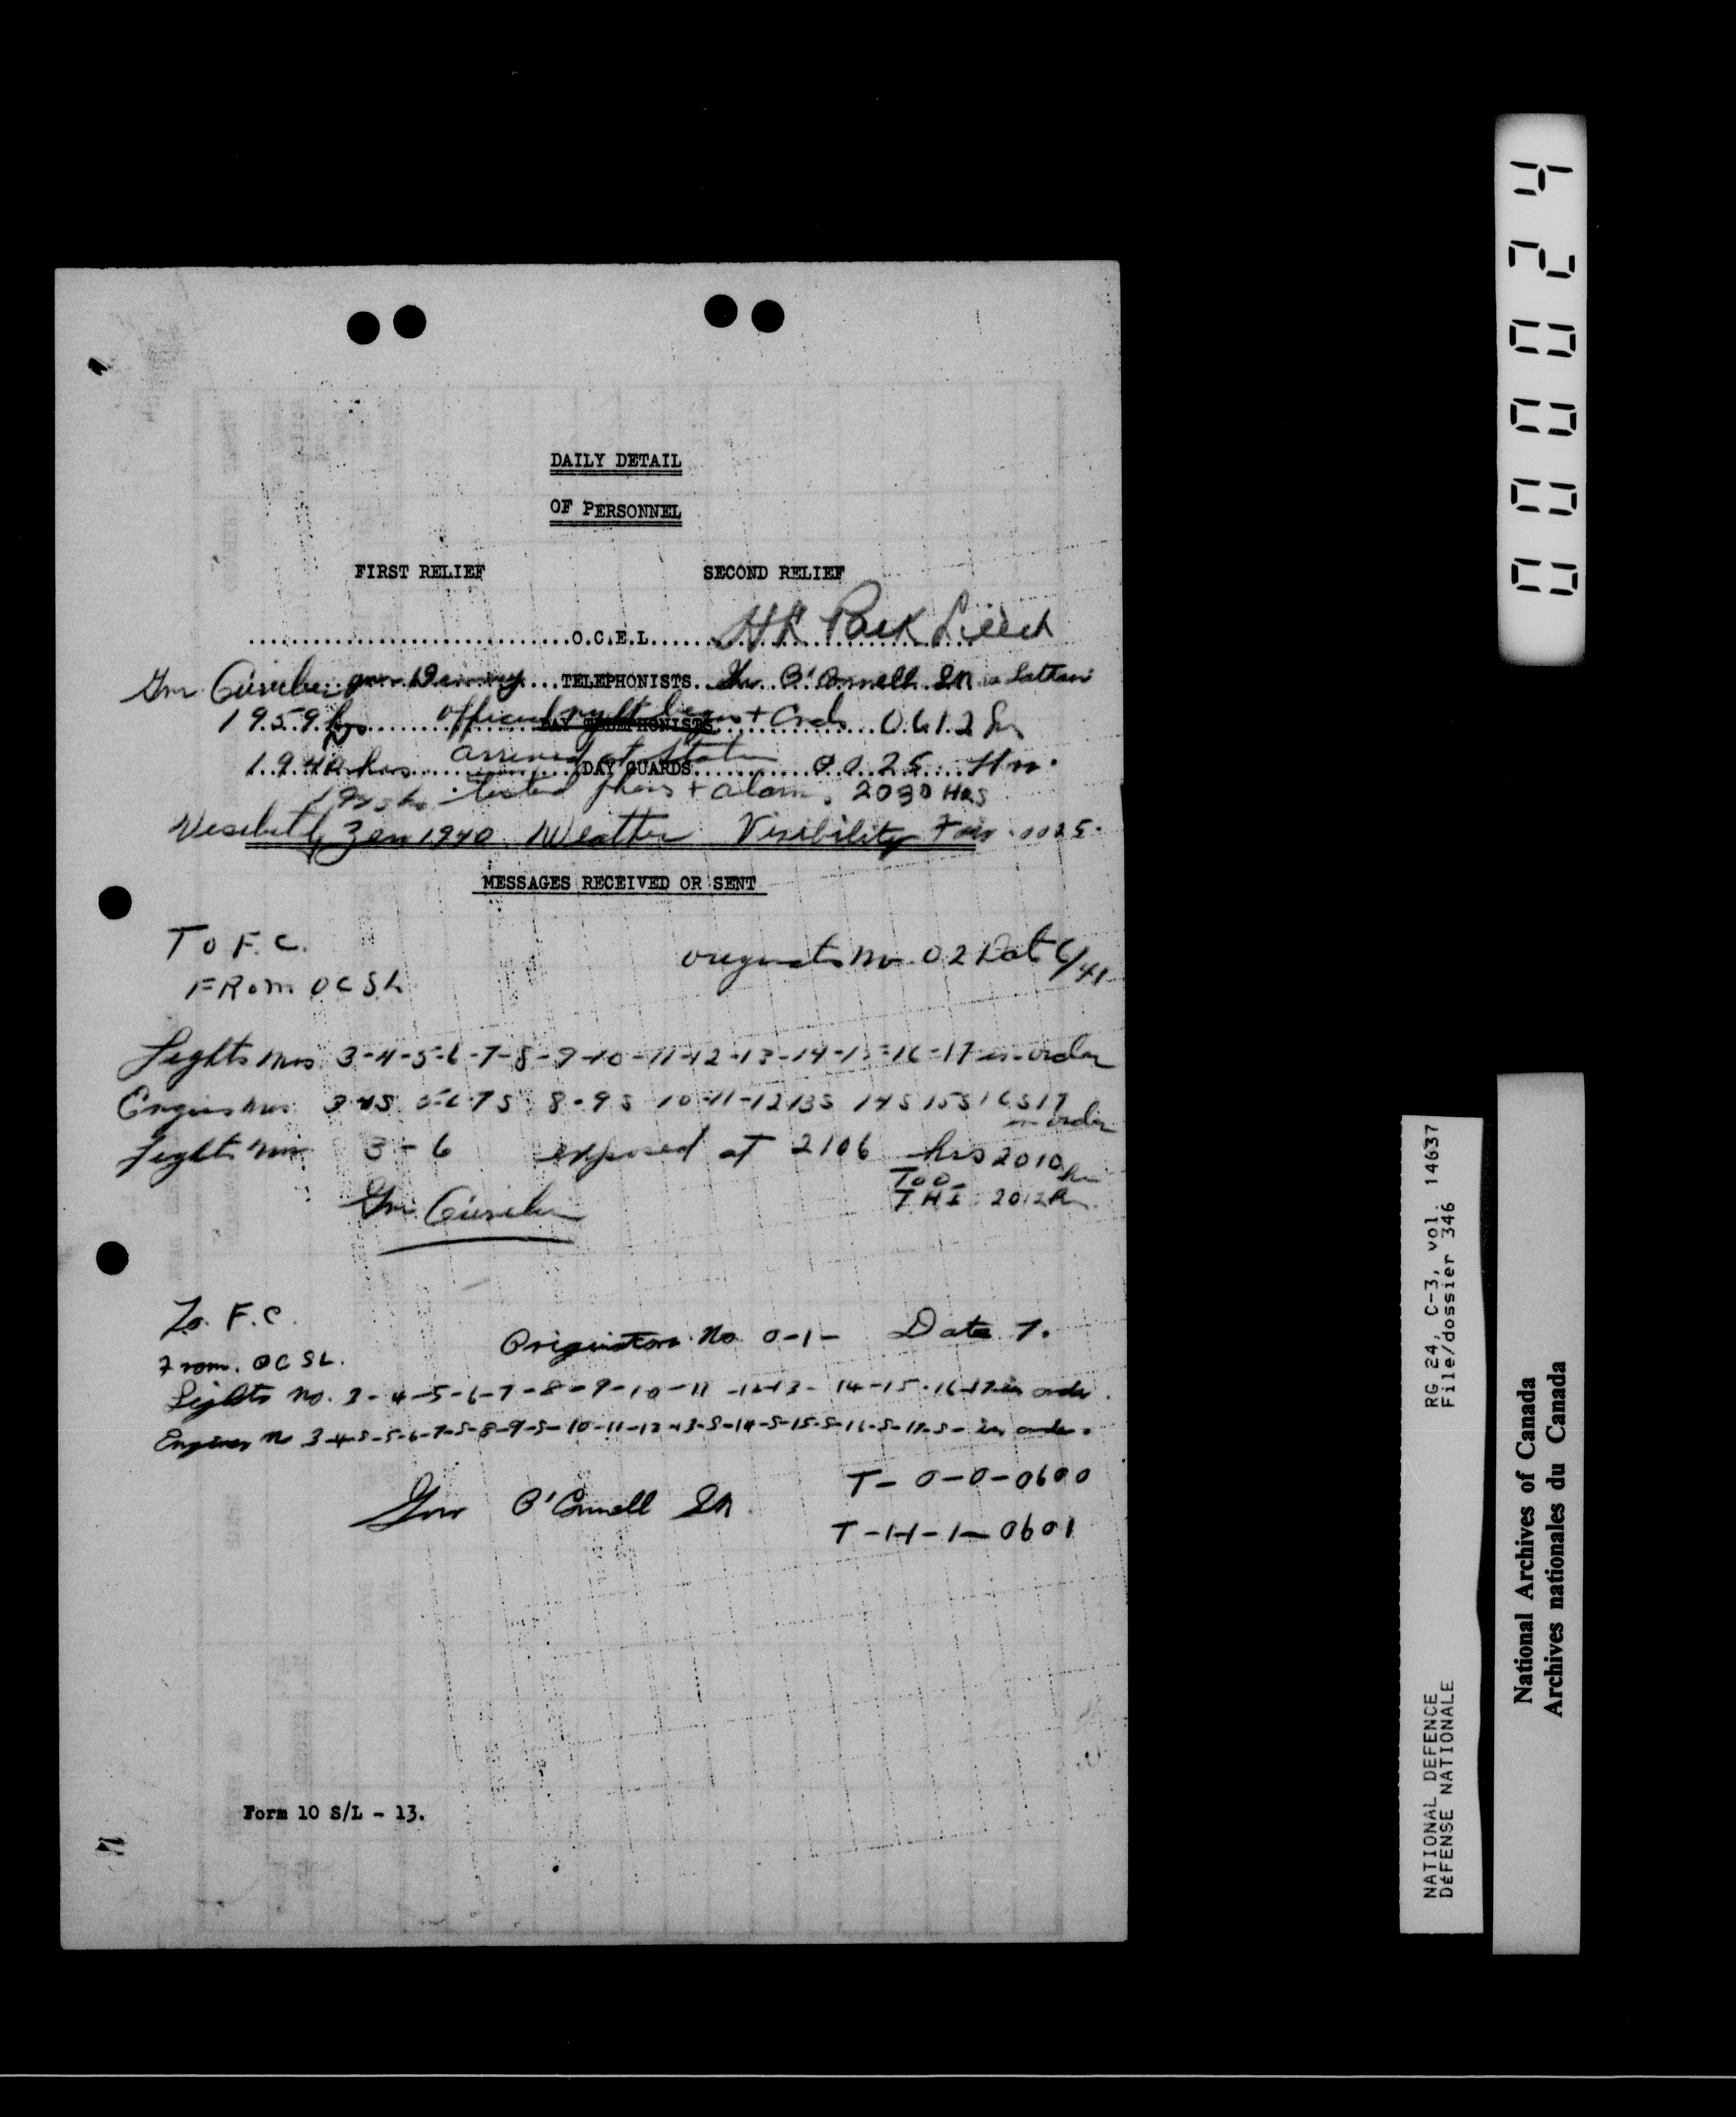 DAILY DETAIL
OF PERSONNEL
FIRST RELIEF SECOND RELIEF
O.C.E.L. HR
Gnr TELEPHONISTS Gnr O'Connell
1959 hrs official night begins + ends 0612 hrs
DAY TELEPHONISTS
1940 hrs arrived at Station 0025 Hrs.
DAY GUARDS
tested phones + alarm. 2030 HRS
Zero 1940 Weather Visibility Fair 0025.
MESSAGES RECEIVED OR SENT
TO F.C. No. 02 Date 6/41
FROM OCSL
Lights nos 3-4-5-6-7-8-9-10-11-12-13-14-15-16-17 in order
Engines nos 3-4S 5-6-7S 8-9S 10-11-12 13S 14S 15S 16S 17
in order
Lights nos 3-6 exposed at 2106 hrs
TOO 2010 hr
THI 2012 hr
Gnr
To. F.C. Originators No 0-1- Date 7.
From. OCSL.
Lights no. 3-4-5-6-7-8-9-10-11-12-13-14-15-16-17 in order.
Engines no 3-4-S-5-6-7-S-8-9-S-10-11-12-13-S-14-S-15-S-16-S-17-S- in order.
T-O-O-0600
Gnr O'Connell
T-H-I-0601
Form 10 S/L - 13.
000024
NATIONAL DEFENCE RG 24, C-3, vol. 14637
DÉFENSE NATIONALE File/dossier 346
National Archives of Canada
Archives nationales du Canada